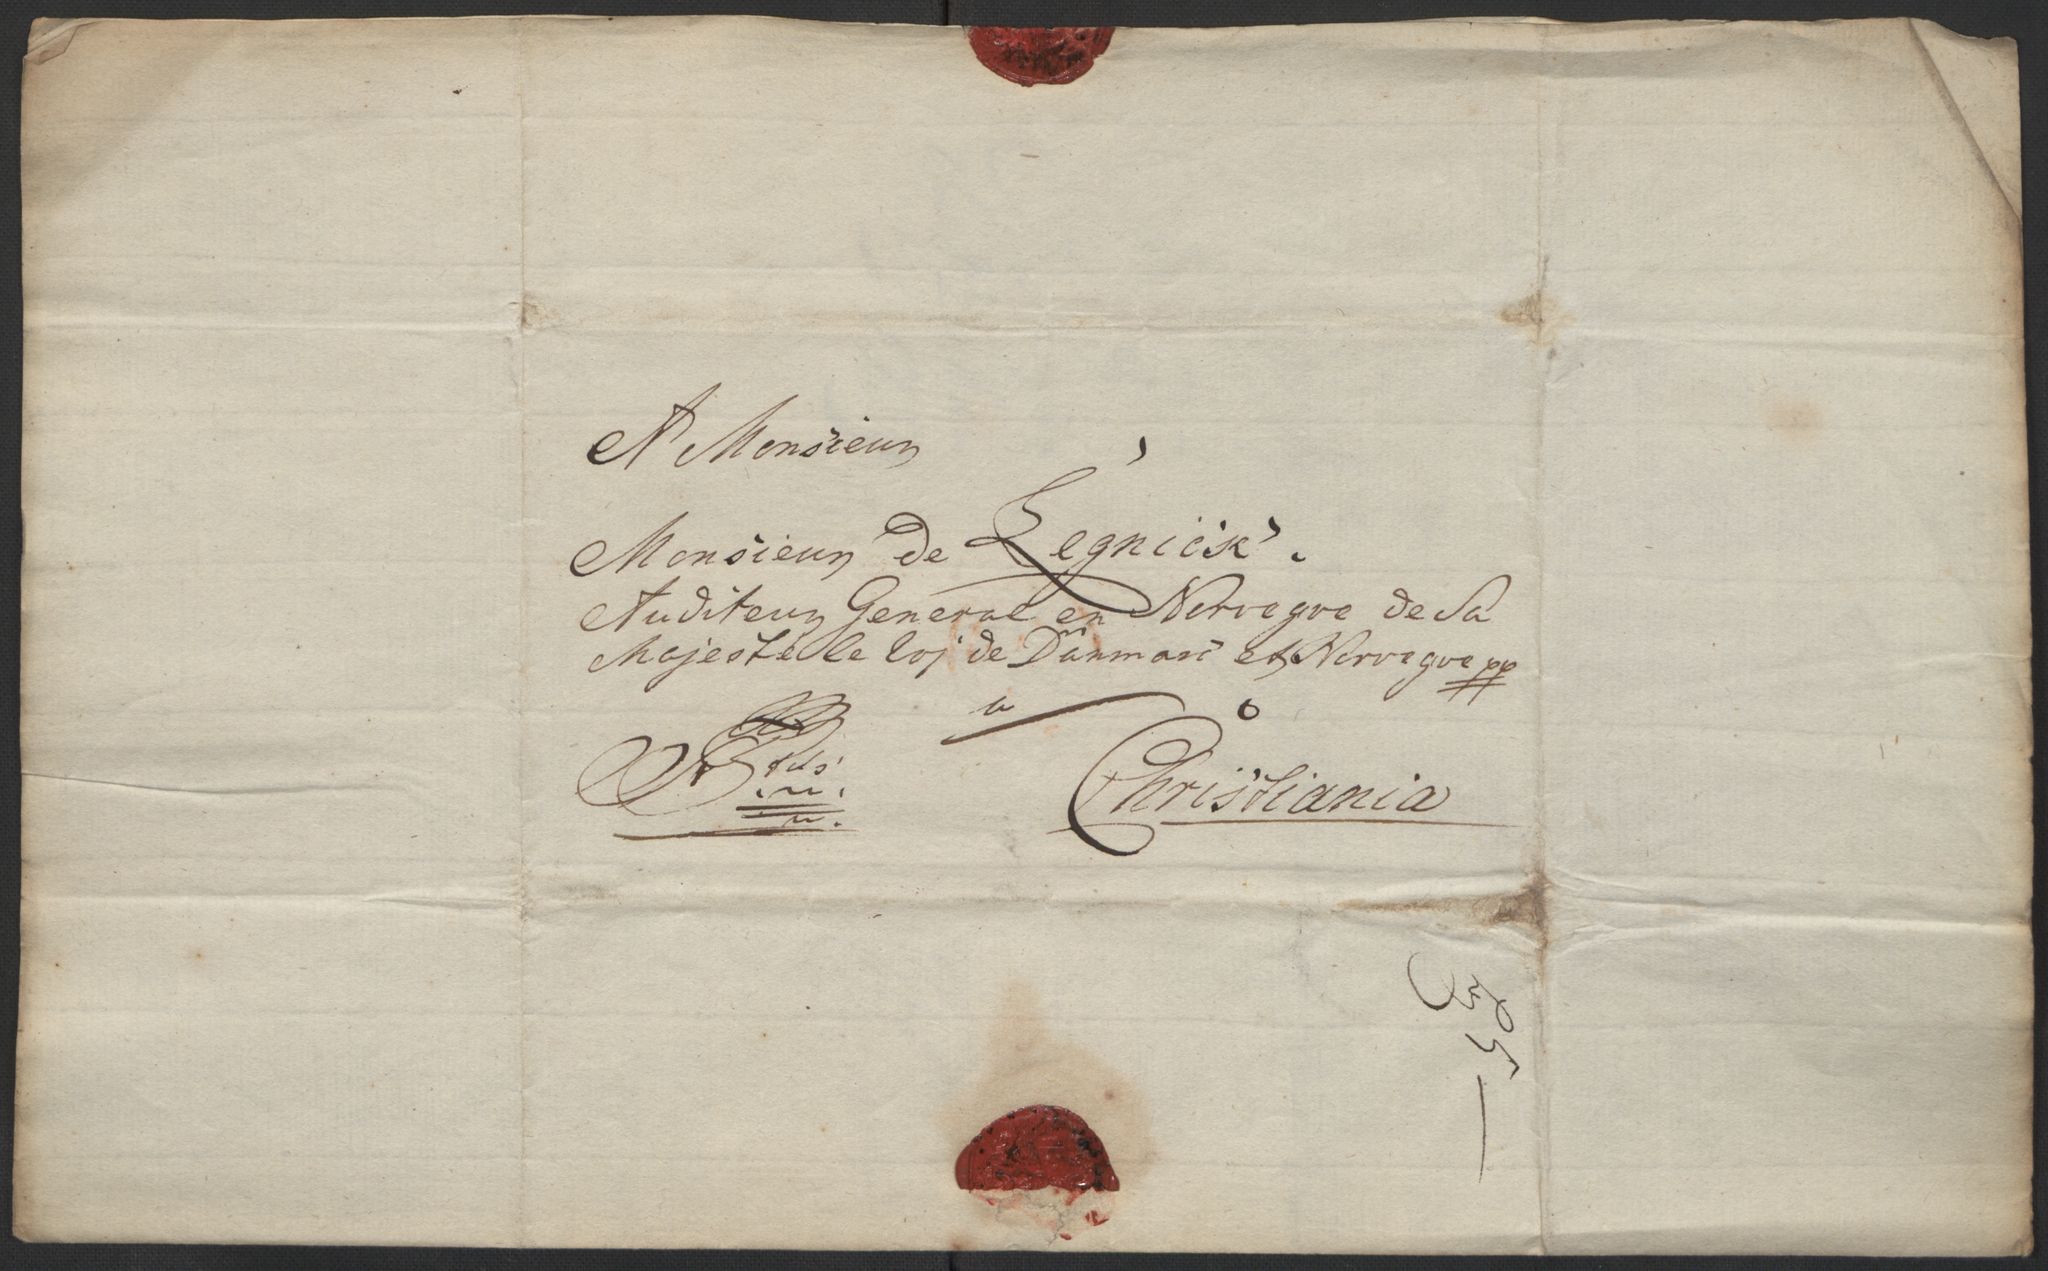 A Monsieur
Monsieur de Zegnick
Auditeur General en Norvegve de Sa
Majeste le Roj de Danmarc et Norvegve pp
a
Christiania